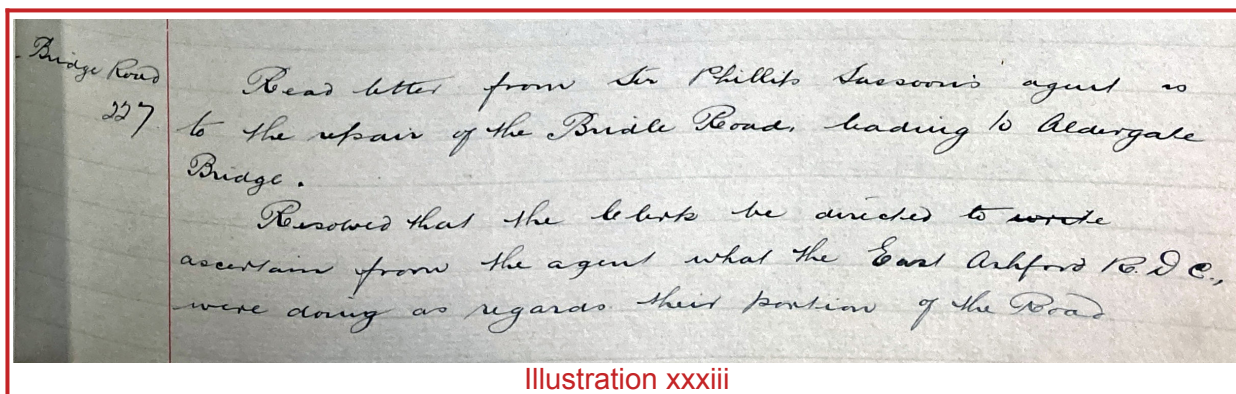 Bridge Road
227
Read letter from Sir Phillip Sassoon's agent as
to the repair of the Bridle Road, leading to Aldergate
Bridge.
Resolved that the Clerk be directed to wrote
ascertain from the agent what the East Ashford R.D.C.,
were doing as regards their portion of the Road
Illustration xxxiii